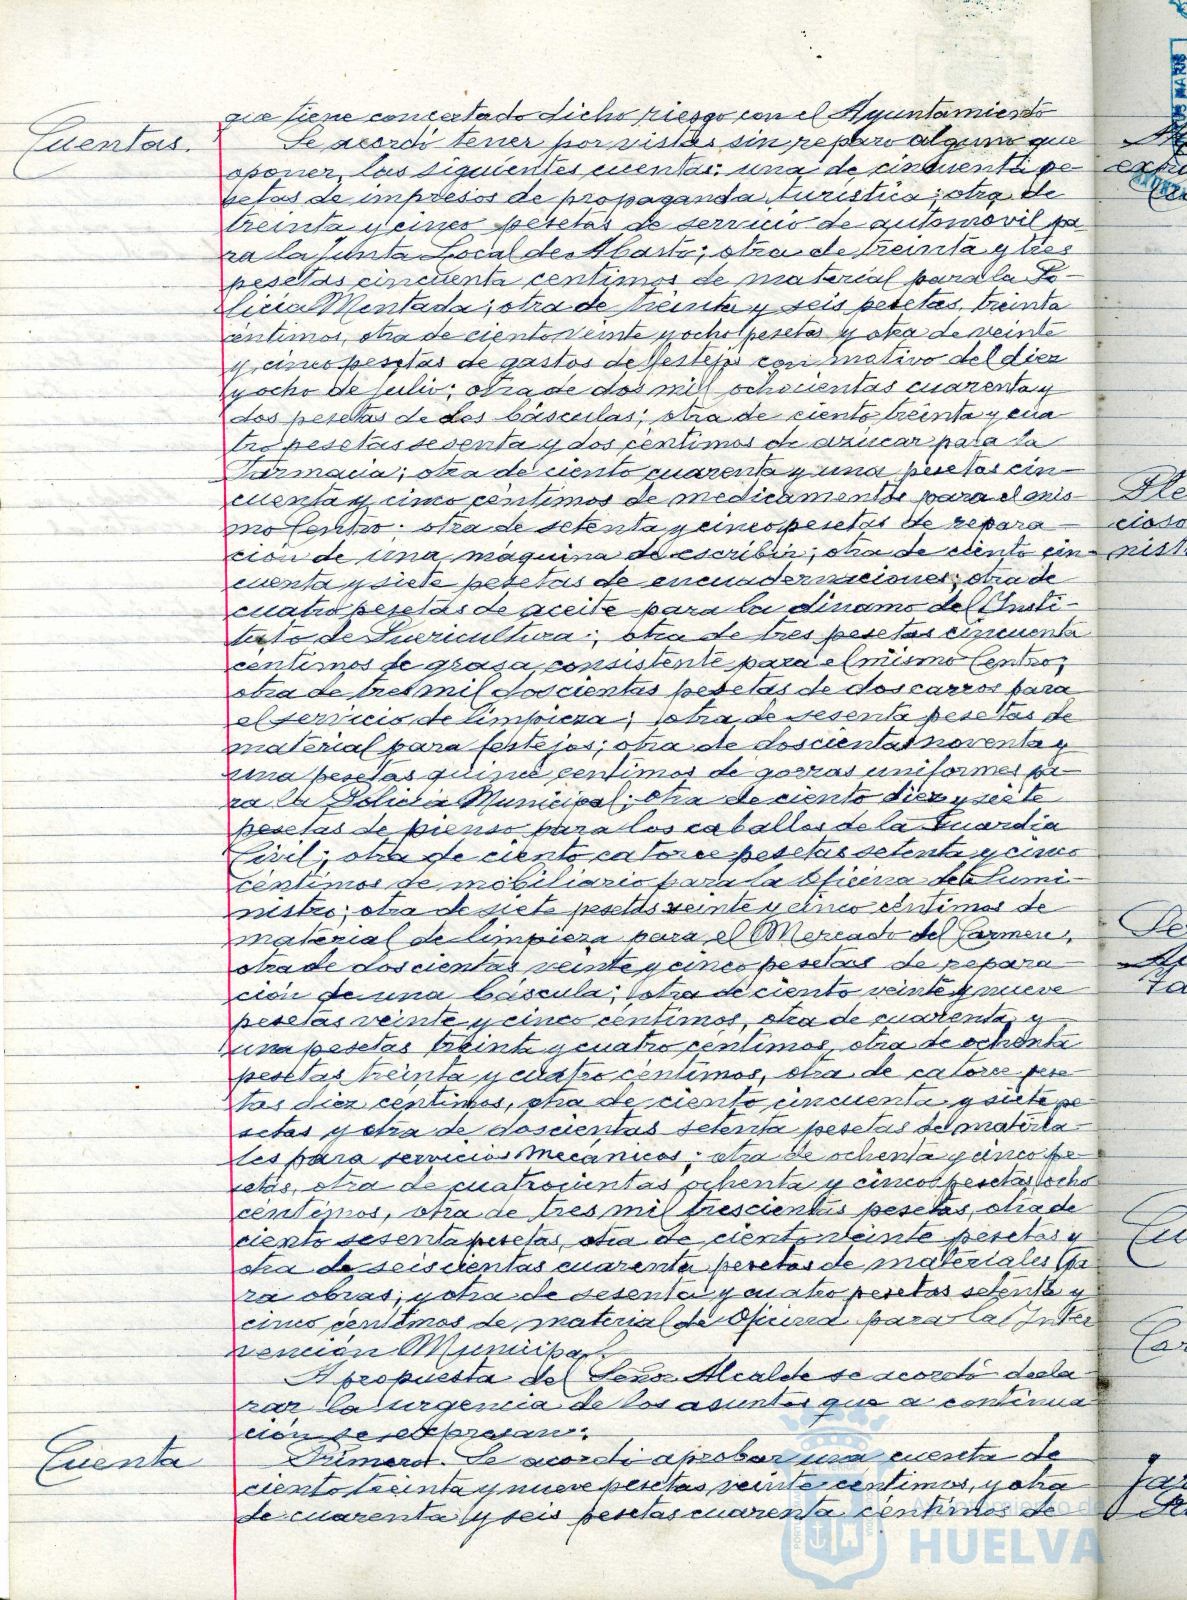 que tiene concertado dicho riesgo con el Ayuntamiento
Cuentas.
Se acordó tener por vistas sin reparo alguno que
oponer, las siguientes cuentas: una de cincuenta pe-
setas de impresos de propaganda turística; otra de
treinta y cinco pesetas de servicio de automóvil pa
ra la Junta Local de Abasto; otra de treinta y tres
pesetas cincuenta centimos de material para la Po-
licia Montada; otra de treinta y seis pesetas, treinta
centimos, otra de ciento veinte y ocho pesetas y otra de veinte
y cinco pesetas de gastos de festejos con motivo del diez
y ocho de Julio; otra de dos mil ochocientas cuarenta y
dos pesetas de dos básculas; otra de ciento treinta y cua
tro pesetas sesenta y dos céntimos de azúcar para la
Farmacia; otra de ciento cuarenta y una pesetas cin-
cuenta y cinco céntimos de medicamentos para el mis-
mo Centro; otra de setenta y cinco pesetas de repara-
ción de una máquina de escribir; otra de ciento cin-
cuenta y siete pesetas de encuadernaciones; otra de
cuatro pesetas de aceite para la dinamo del Insti-
tuto de Puericultura; otra de tres pesetas cincuenta
centimos de grasa consistente para el mismo Centro;
otra de tres mil doscientas pesetas de dos carros para
el servicio de limpieza; otra de sesenta pesetas de
material para festejos; otra de doscientas noventa y
una pesetas quince centimos de gorras uniformes pa-
ra la Policia Municipal; otra de ciento diez y siete
pesetas de pienso para los caballos de la Guardia
Civil; otra de ciento catorce pesetas setenta y cinco
céntimos de mobiliario para la Oficina de Sumi-
nistro; otra de siete pesetas veinte y cinco céntimos de
material de limpieza para el Mercado del Carmen,
otra de doscientas veinte y cinco pesetas de repara-
ción de una báscula; otra de ciento veinte y nueve
pesetas veinte y cinco céntimos, otra de cuarenta y
una pesetas treinta y cuatro céntimos, otra de ochenta
pesetas treinta y cuatro centimos, otra de catorce pese
tas diez centimos, otra de ciento cincuenta y siete pe
setas y otra de doscientas setenta pesetas de materia
les para servicios mecánicos; otra de ochenta y cinco pe-
setas, otra de cuatrocientas ochenta y cinco pesetas ocho
céntimos, otra de tres mil trescientas pesetas, otra de
ciento sesenta pesetas, otra de ciento veinte pesetas y
otra de seiscientas cuarenta pesetas de materiales pa
ra obras; y otra de sesenta y cuatro pesetas setenta y
cinco céntimos de material de Oficina para la Inter
vención Municipal.
A propuesta del Señor Alcalde se acordó decla
rar la urgencia de los asuntos que a continua
ción se expresan:
Cuenta
Primero. Se acordó aprobar una cuenta de
ciento treinta y nueve pesetas, veinte centimos, y otra
de cuarenta y seis pesetas cuarenta céntimos de
Ayuntamiento de
HUELVA